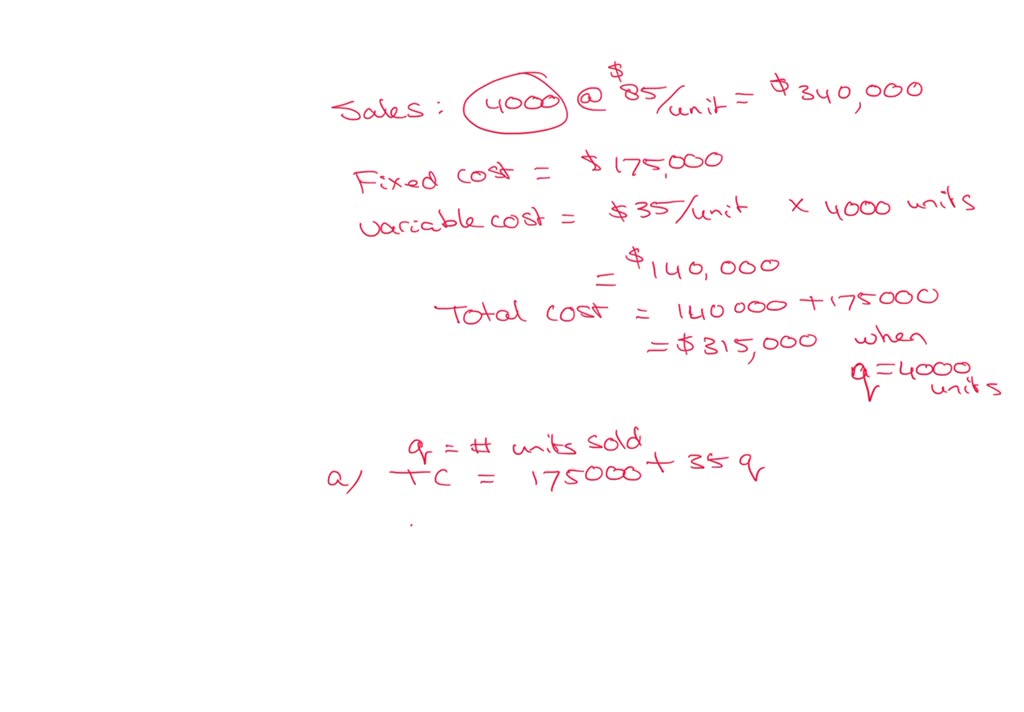 Sales: 4000 @ $85/unit = $340,000
Fixed cost = $175,000
Variable cost = $35/unit × 4000 units
= $140,000
Total cost = 140000 + 175000
= $315,000 when
q = 4000
units
q = # units sold
a/ TC = 175000 + 35q